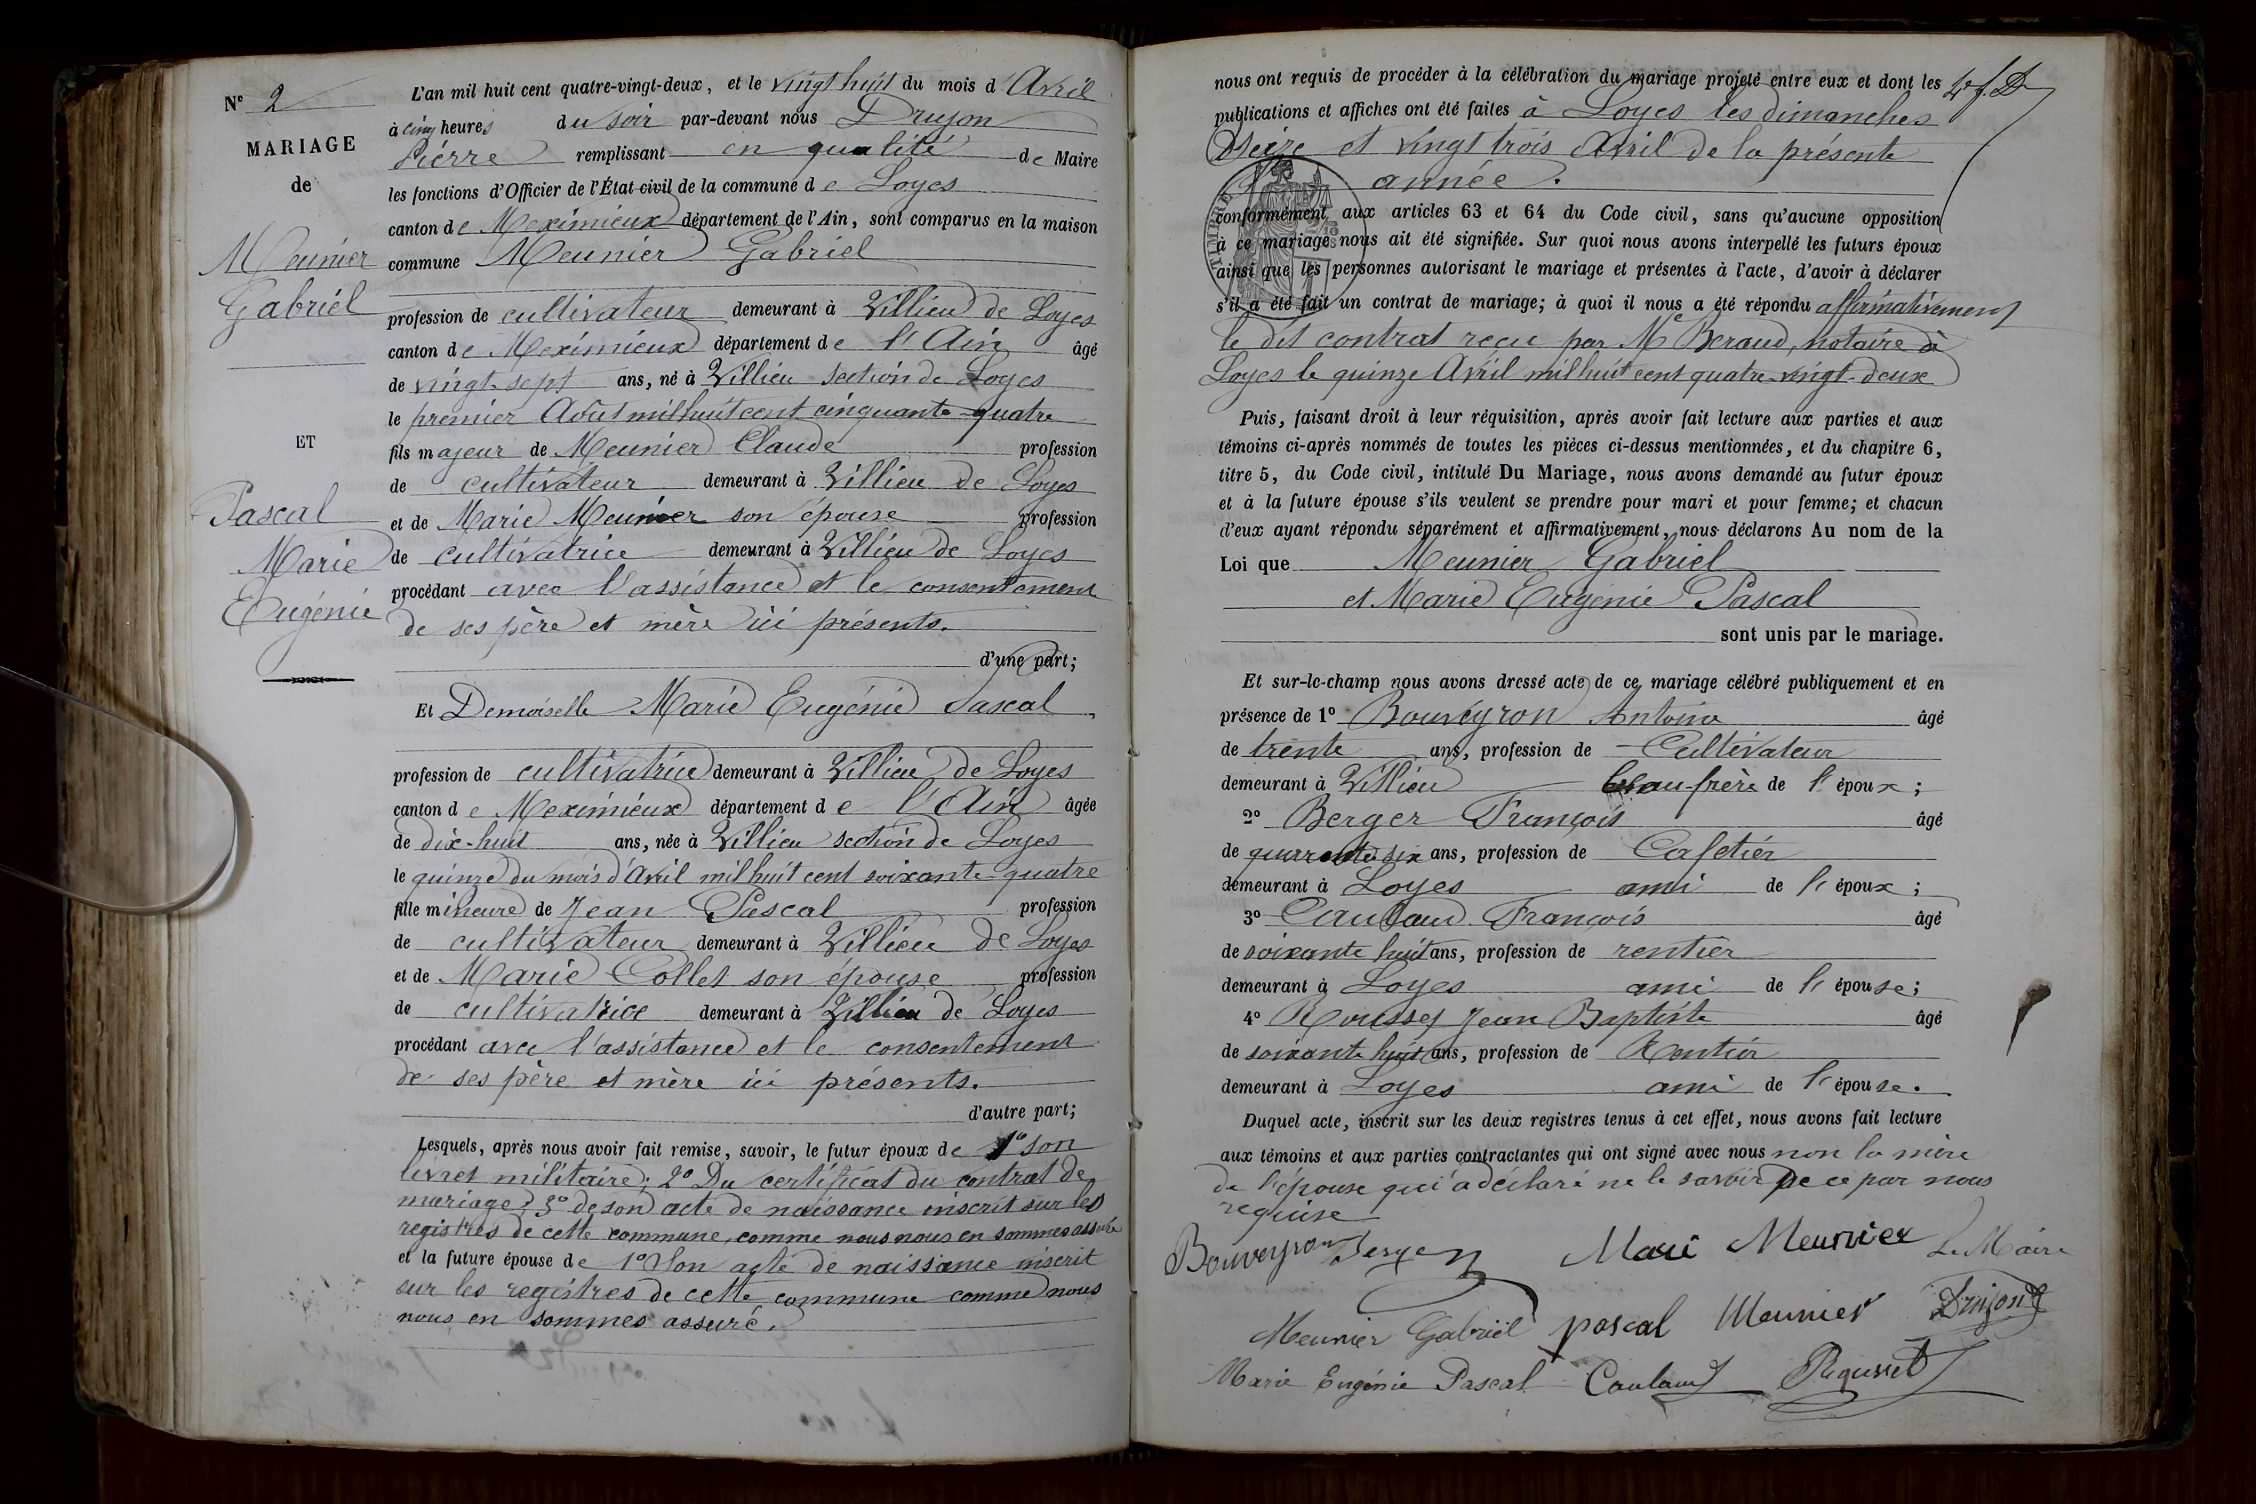 N° 2
MARIAGE
de
Meunier
Gabriel
ET
Pascal
Marie
Eugénie
L'an mil huit cent quatre-vingt-deux, et le vingt huit du mois d'Avril
à cinq heures du soir par-devant nous Drujon
Pierre remplissant en qualité de Maire
les fonctions d'Officier de l'État civil de la commune de Loyes
canton de Meximieux département de l'Ain, sont comparus en la maison
commune Meunier Gabriel
profession de cultivateur demeurant à Villieu de Loyes
canton de Meximieux département de l'Ain âgé
de vingt-sept ans, né à Villieu section de Loyes
le premier Août mil huit cent cinquante-quatre
fils majeur de Meunier Claude profession
de cultivateur demeurant à Villieu de Loyes
et de Marie Meunier son épouse profession
de cultivatrice demeurant à Villieu de Loyes
procédant avec l'assistance et le consentement
de ses père et mère ici présents.
d'une part;
Et Demoiselle Marie Eugénie Pascal
profession de cultivatrice demeurant à Villieu de Loyes
canton de Meximieux département de l'Ain âgée
de dix-huit ans, née à Villieu section de Loyes
le quinze du mois d'Avril mil huit cent soixante-quatre
fille mineure de Jean Pascal profession
de cultivateur demeurant à Villieu de Loyes
et de Marie Collet son épouse profession
de cultivatrice demeurant à Villieu de Loyes
procédant avec l'assistance et le consentement
de ses père et mère ici présents.
d'autre part;
Lesquels, après nous avoir fait remise, savoir, le futur époux de 1° son
livret militaire; 2° Du certificat du contrat de
mariage; 3° de son acte de naissance inscrit sur les
registres de cette commune, comme nous nous en sommes assuré
et la future épouse de 1° Son acte de naissance inscrit
sur les registres de cette commune comme nous
nous en sommes assuré.
nous ont requis de procéder à la célébration du mariage projeté entre eux et dont les
publications et affiches ont été faites à Loyes les dimanches
Seize et vingt trois Avril de la présente
année.
TIMBRE
conformément aux articles 63 et 64 du Code civil, sans qu'aucune opposition
à ce mariage nous ait été signifiée. Sur quoi nous avons interpellé les futurs époux
ainsi que les personnes autorisant le mariage et présentes à l'acte, d'avoir à déclarer
s'il a été fait un contrat de mariage; à quoi il nous a été répondu affirmativement
le dit contrat reçu par Me Beraud, notaire à
Loyes le quinze Avril mil huit cent quatre-vingt-deux
Puis, faisant droit à leur réquisition, après avoir fait lecture aux parties et aux
témoins ci-après nommés de toutes les pièces ci-dessus mentionnées, et du chapitre 6,
titre 5, du Code civil, intitulé Du Mariage, nous avons demandé au futur époux
et à la future épouse s'ils veulent se prendre pour mari et pour femme; et chacun
d'eux ayant répondu séparément et affirmativement, nous déclarons Au nom de la
Loi que Meunier Gabriel
et Marie Eugénie Pascal
sont unis par le mariage.
Et sur-le-champ nous avons dressé acte de ce mariage célébré publiquement et en
présence de 1° Bouveyron Antoine âgé
de trente ans, profession de Cultivateur
demeurant à Villieu beau-frère de l'époux;
2° Berger François âgé
de quarante six ans, profession de Cafetier
demeurant à Loyes ami de l'époux;
3° Caulaud François âgé
de soixante huit ans, profession de rentier
demeurant à Loyes ami de l'épouse;
4° Rousset Jean Baptiste âgé
de soixante huit ans, profession de Rentier
demeurant à Loyes ami de l'épouse.
Duquel acte, inscrit sur les deux registres tenus à cet effet, nous avons fait lecture
aux témoins et aux parties contractantes qui ont signé avec nous non la mère
de l'épouse qui a déclaré ne le savoir de ce par nous
requise
Bouveyron Berger Marie Meunier Le Maire
Meunier Gabriel pascal Meunier Drujon
Marie Eugénie Pascal Caulaud Rousset